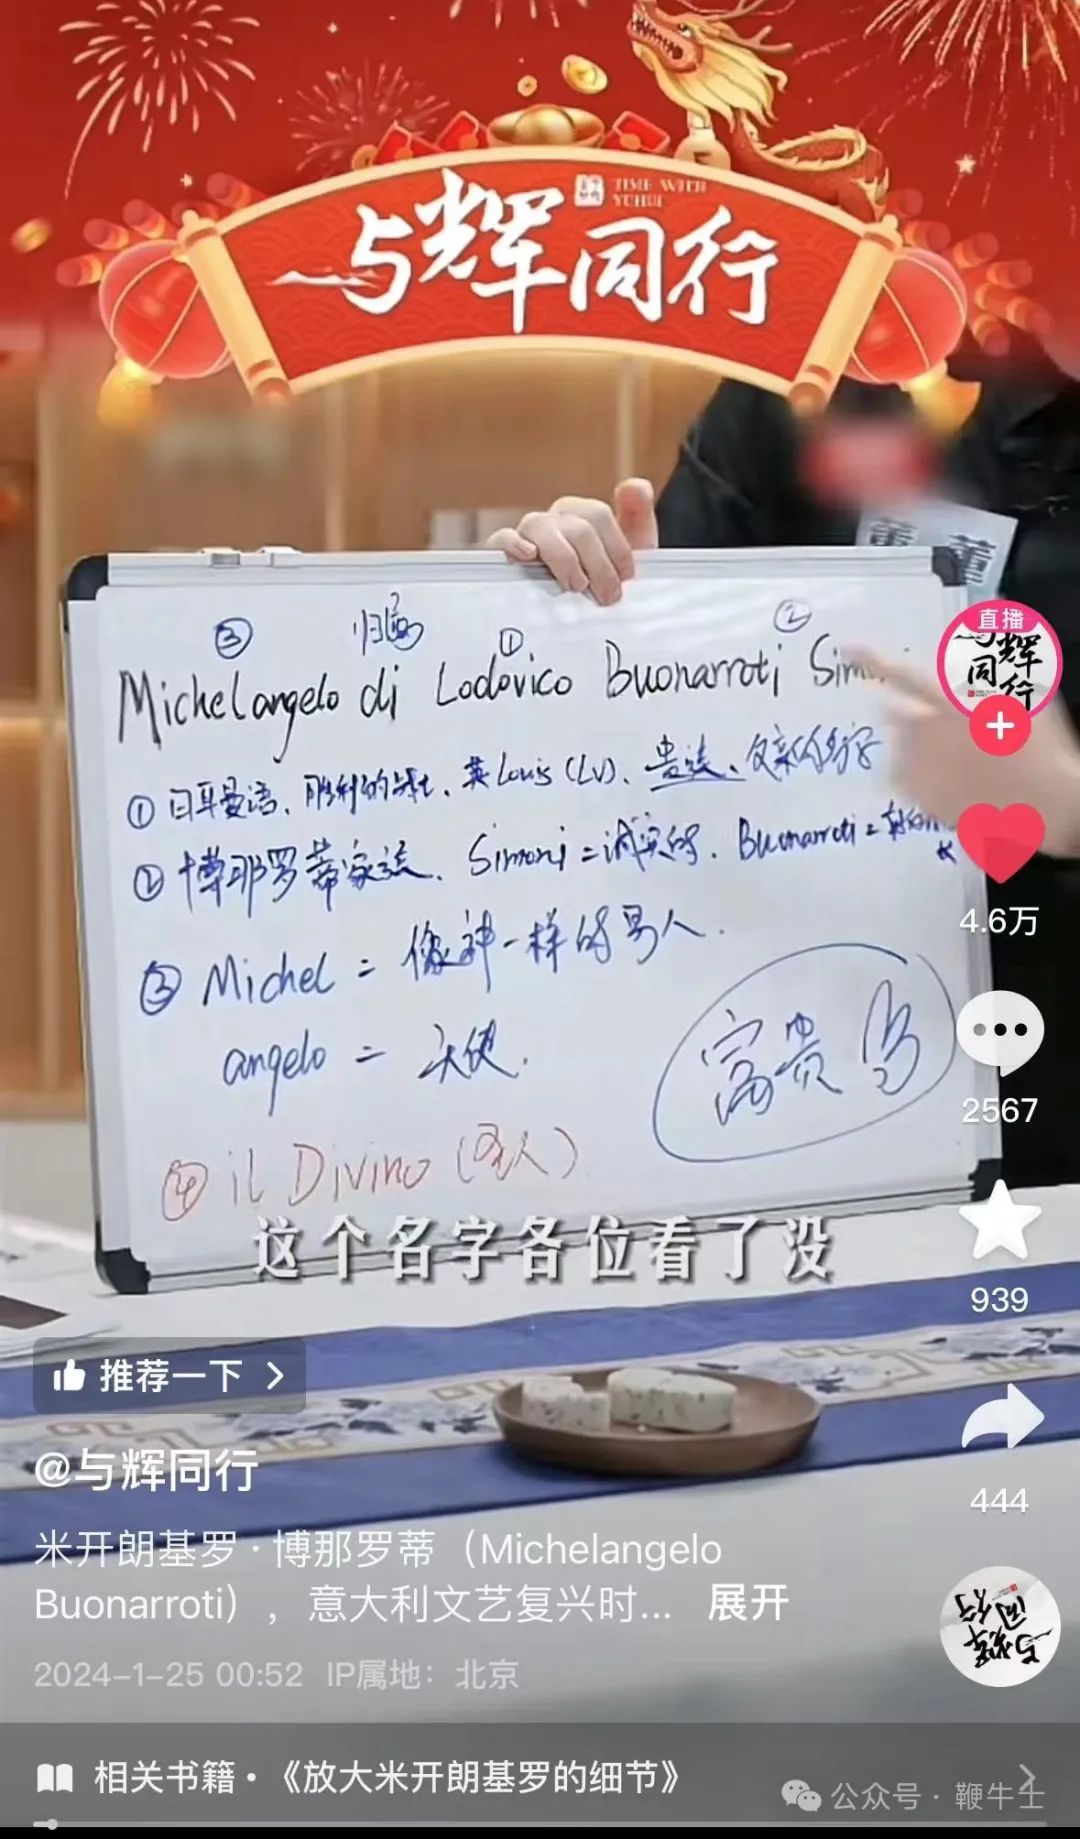 TIME WITH
YUHUI
与辉同行
③ 归属? ① ②
Michelangelo di Lodovico Buonarroti Sim
① 日耳曼语、胜利的战士、英Louis(LV)、贵族、父亲的名字
② 博那罗蒂家族、Simoni=诚实的、Buonarroti=
③ Michel = 像神一样的男人.
angelo = 天使.
富贵
④ il Divino (圣人)
这个名字各位看了没
董
直播
与辉同行
4.6万
2567
939
444
推荐一下
@与辉同行
米开朗基罗·博那罗蒂（Michelangelo
Buonarroti），意大利文艺复兴时... 展开
2024-1-25 00:52 IP属地：北京
与辉同行
相关书籍·《放大米开朗基罗的细节》
公众号·鞭牛士